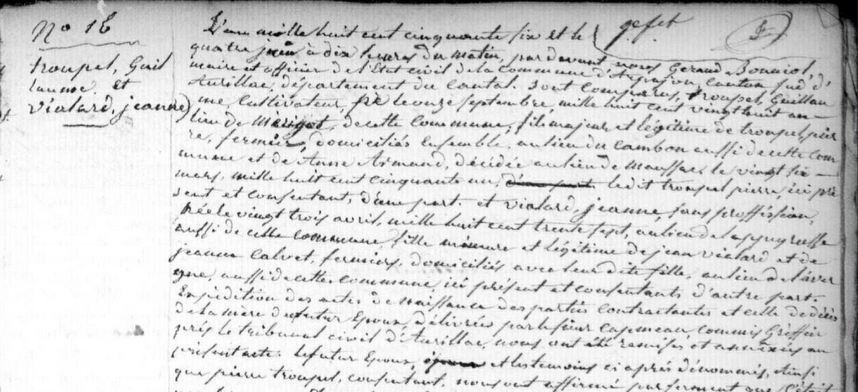 No 16
troupel, Guil
laume et
vialard, jeanne
L'an mille huit cent cinquante six et le
quatre juin à dix heures du matin, par devant nous Gerand Bonniol,
maire et officier de l'Etat civil de la Commune d'Arpajon Canton sud d'
Aurillac, département du Cantal. Sont comparus, troupel, Guillau
me, Cultivateur, né le onze septembre, mille huit cent vingt huit au
lieu de de cette Commune, fils majeur et légitime de troupel, pier
re, fermier, domiciliés ensemble au lieu du Cambon aussi de cette com
mune et de Anne Armand, décédée au lieu de Maussac le vingt six
mars, mille huit cent cinquante un, ledit troupel pierre, ici pré
sent et consentant, d'une part. et vialard, jeanne, sans proffission,
née le vingt trois avril, mille huit cent trente sept, au lieu de
aussi de cette Commune, fille mineure et légitime de jean vialard et de
jeanne Calvet, fermiers, domiciliés avec leur dite fille au lieu de
aussi de cette Commune, ici présent et consentants d'autre part.
Expédition des actes de Naissance des parties contractantes et celle de décès
de la mère du futur Epoux, délivrées par le sieur commis Greffier
près le tribunal civil d'Aurillac, nous ont été remises et annexées au
présent acte. le futur Epoux, et les temoins ci après dénommés, ainsi
que pierre troupel, consentant, nous ont affirmé par serment que